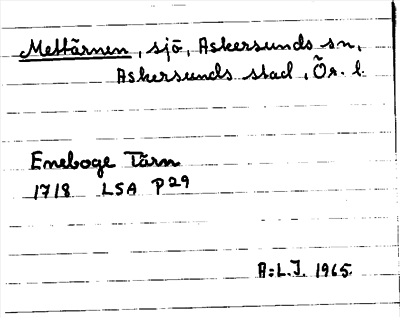 Mettärnen, sjö, Askersunds sn,
Askersunds stad, Ör. l.
Eneboge Tärn
1718 LSA P29
A:L.J. 1965.